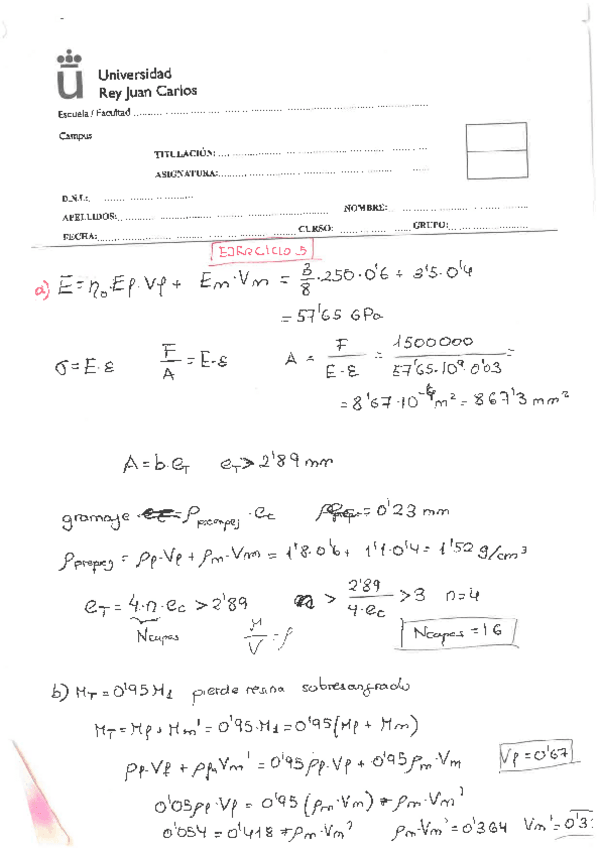 Universidad
Rey Juan Carlos
Escuela / Facultad
Campus
TITULACIÓN:
ASIGNATURA:
D.N.I.:
APELLIDOS: NOMBRE:
FECHA: CURSO: GRUPO:
EJERCICIO 5
a) E = η₀·Ef·Vf + Em·Vm = 3/8·250·0'6 + 3'5·0'4
= 57'65 GPa
σ = E·ε F/A = E·ε A = F/(E·ε) = 1500000/(57'65·10⁹·0'03) =
= 8'67·10⁻⁴ m² = 867'3 mm²
A = b·e_T e_T > 2'89 mm
gramaje = ρ prepeg · ec = 0'23 mm
ρ prepreg = ρf·Vf + ρm·Vm = 1'8·0'6 + 1'1·0'4 = 1'52 g/cm³
e_T = 4·n·ec > 2'89 n > 2'89/(4·ec) > 3 n = 4
Ncapas M/V = ρ Ncapas = 16
b) M_T = 0'95 M₁ pierde resina sobresangrado
M_T = Mf + Mm' = 0'95·M₁ = 0'95(Mf + Mm)
ρf·Vf + ρm·Vm' = 0'95ρf·Vf + 0'95ρm·Vm Vf = 0'67
0'05ρf·Vf = 0'95(ρm·Vm) + ρm·Vm'
0'054 = 0'418 + ρm·Vm' ρm·Vm' = 0'364 Vm' = 0'3